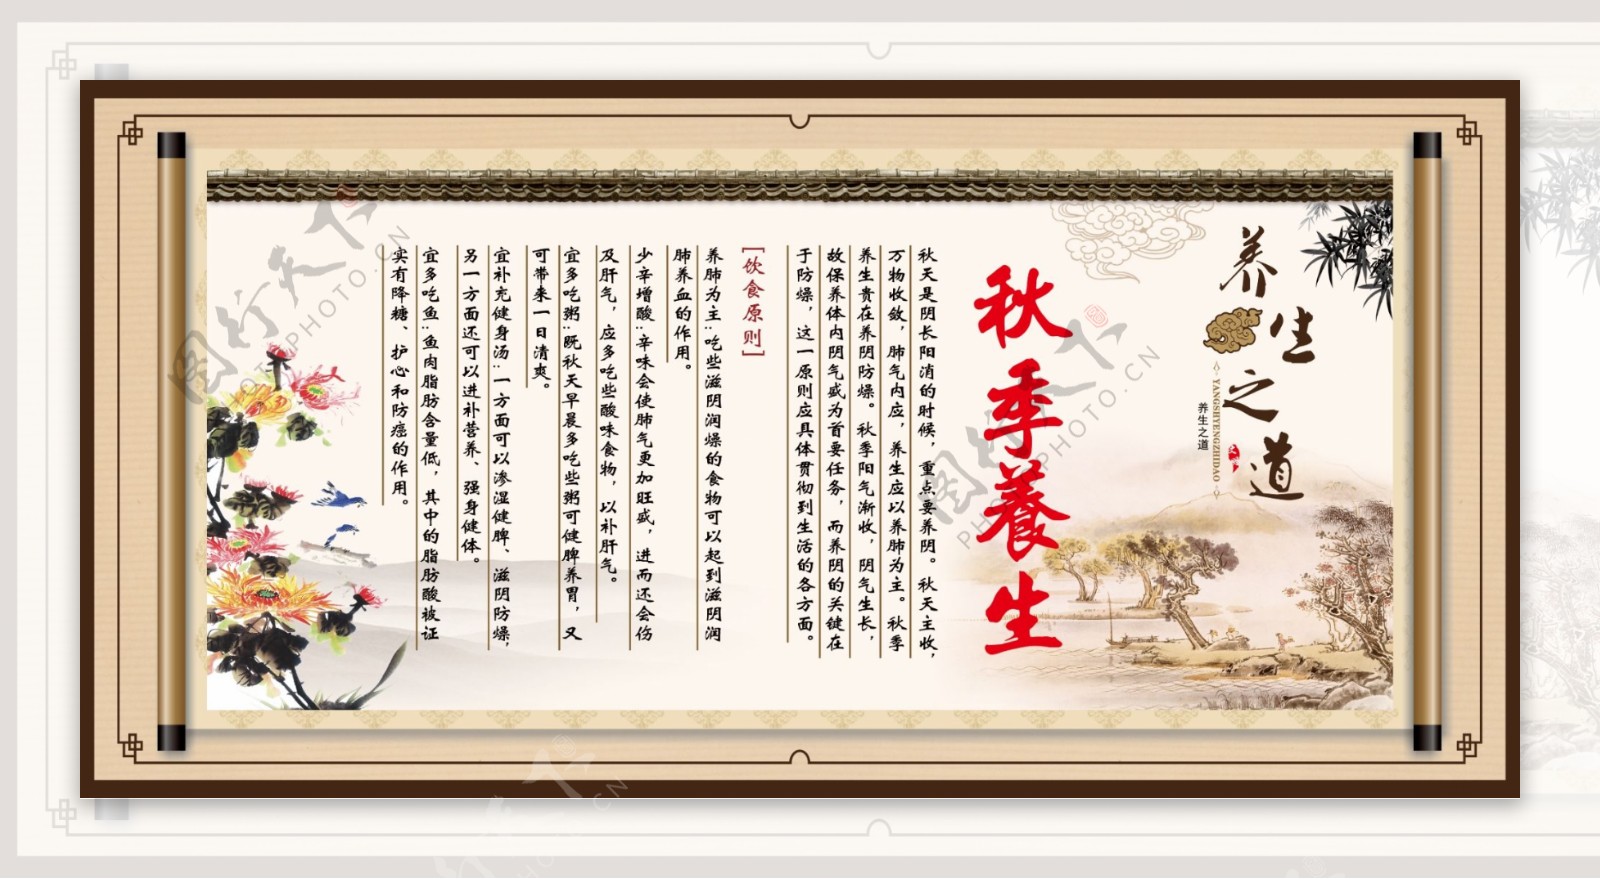 养生之道
YANGSHYENGZHIDAO
养生之道
秋季養生
秋天是阴长阳消的时候，重点要养阴。秋天主收，
万物收敛，肺气内应，养生应以养肺为主。秋季
养生贵在养阴防燥。秋季阳气渐收，阴气生长，
故保养体内阴气盛为首要任务，而养阴的关键在
于防燥，这一原则应具体贯彻到生活的各方面。
[饮食原则]
养肺为主:吃些滋阴润燥的食物可以起到滋阴润
肺养血的作用。
少辛增酸:辛味会使肺气更加旺盛，进而还会伤
及肝气，应多吃些酸味食物，以补肝气。
宜多吃粥:既秋天早晨多吃些粥可健脾养胃，又
可带来一日清爽。
宜补充健身汤:一方面可以渗湿健脾、滋阴防燥，
另一方面还可以进补营养、强身健体。
宜多吃鱼:鱼肉脂肪含量低，其中的脂肪酸被证
实有降糖、护心和防癌的作用。
图行天下
PHOTO.CN
图行天下
PHOTO.CN